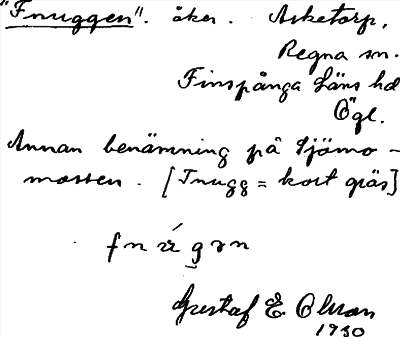 "Fnuggen". åker. Asketorp,
Regna sn.
Finspånga Läns hd
Ögl.
Annan benämning på Sjömo-
mossen. [Fnugg = kort gräs]
Gustaf E. Olsson
1930